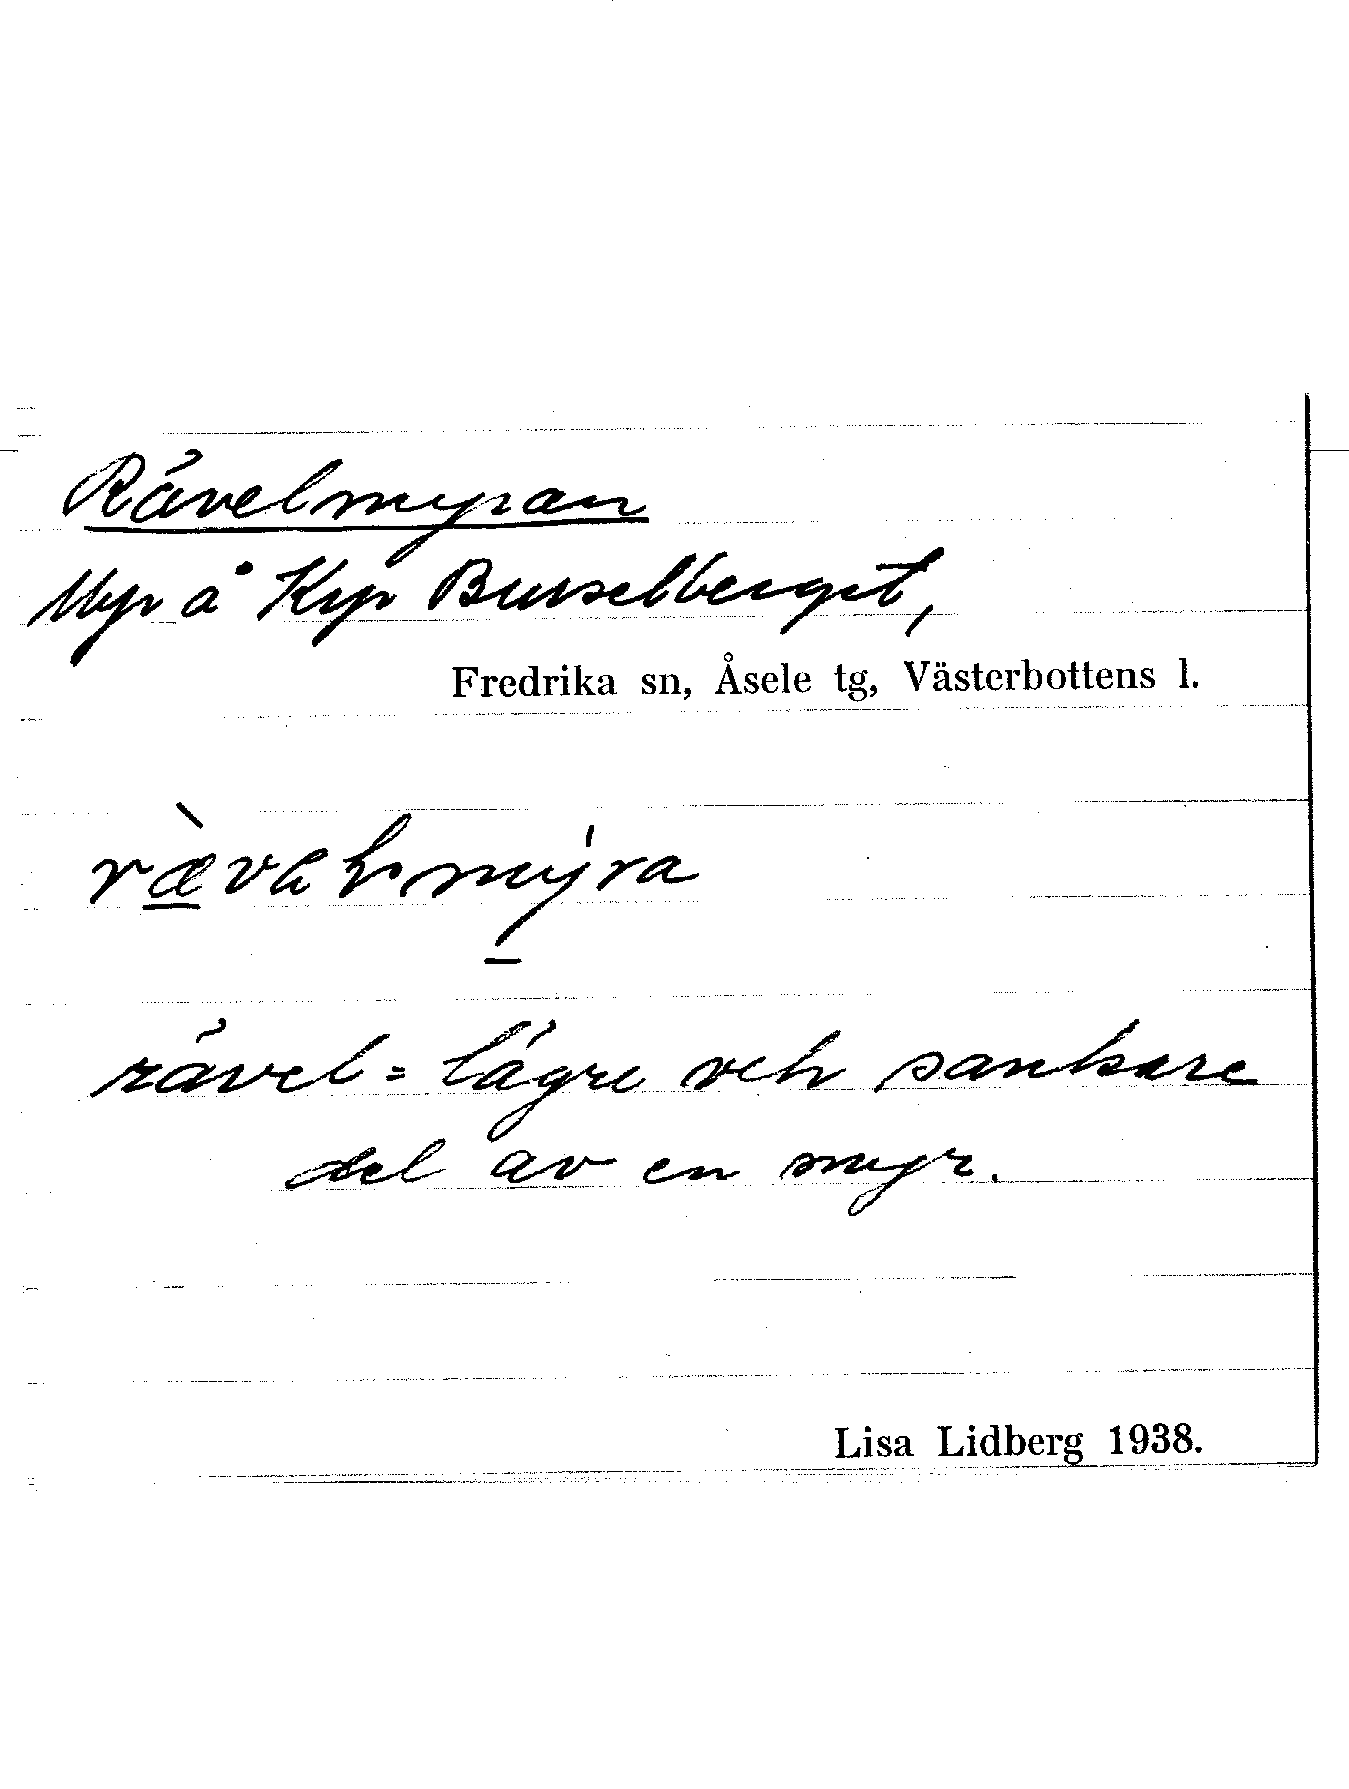 Rävelmyran
Myr å Krp Burselberget,
Fredrika sn, Åsele tg, Västerbottens l.
rävel = lägre och sankare
del av en myr.
Lisa Lidberg 1938.